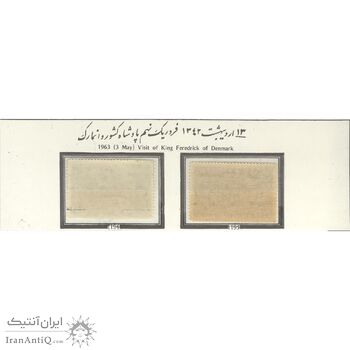 ۱۳ اردیبهشت ۱۳۴۲ فردریک نهم پادشاه کشور دانمارک
1963 (3 May) Visit of King Feredrick of Denmark
ایران آنتیک
IranAntiQ.com